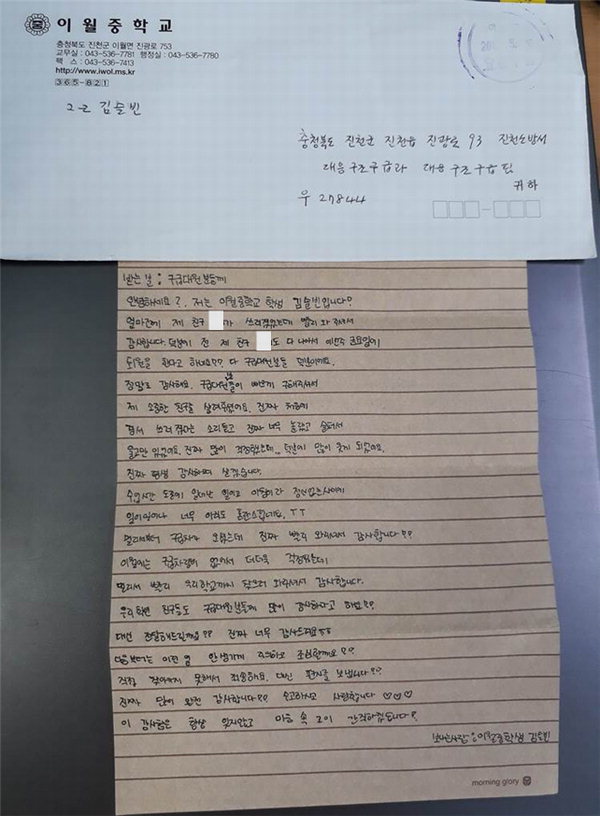 이월중학교
충청북도 진천군 이월면 진광로 753
교무실 : 043-536-7781 행정실 : 043-536-7780
팩 스 : 043-536-7413
http://www.iwol.ms.kr
365-821
2-2 김슬빈
충청북도 진천군 진천읍 진광로 93 진천소방서
대응구조구급과 대응구조구급팀
귀하
우 27844
받는 분 : 구급대원분들께
안녕하세요?, 저는 이월중학교 학생 김슬빈입니다
얼마전에 제 친구 가 쓰러졌었는데 빨리 와주셔서
감사합니다. 덕분에 전 제 친구 도 다 나아서 이번주 금요일에
퇴원을 한다고 하네요?? 다 구급대원분들 덕분이에요.
정말로 감사해요. 구급대원분들이 빠르게 구해주셔서
제 소중한 친구를 살려주셨어요. 진짜 처음에
쓰러졌다는 소리듣고 진짜 너무 놀랐고 슬퍼서
울고만 있었어요. 진짜 많이 걱정했는데.. 덕분에 많이 좋게 되었어요.
진짜 평생 감사하며 살겠습니다.
수업시간 도중에 일어난 일이고 이동이라 정신없는사이에
일이어나 너무 아직도 혼란스럽네요. ㅜㅜ
멀리에서부터 구급차가 오셨는데 진짜 빨리 와주셔서 감사합니다??
이월에는 구급차량이 없어서 더더욱 걱정됐는데
멀리서 빨리 우리학교까지 와주셔서 감사합니다.
우리 학년 친구들도 구급대원분들께 많이 감사하다고 하던??
대신 전달해드릴께요?? 진짜 너무 감사드려요
다음부터는 이런 일 안생기게 주의하고 조심할께요??
직접 찾아뵙지 못해서 죄송해요. 대신 편지를 보냅니다??
진짜 많이 완전 감사합니다?? 수고하시고 사랑합니다 ♡♡♡
이 감사함은 항상 잊지않고 마음 속 깊이 간직하겠습니다?
보내는사람 : 이월중학생 김슬빈
morning glory